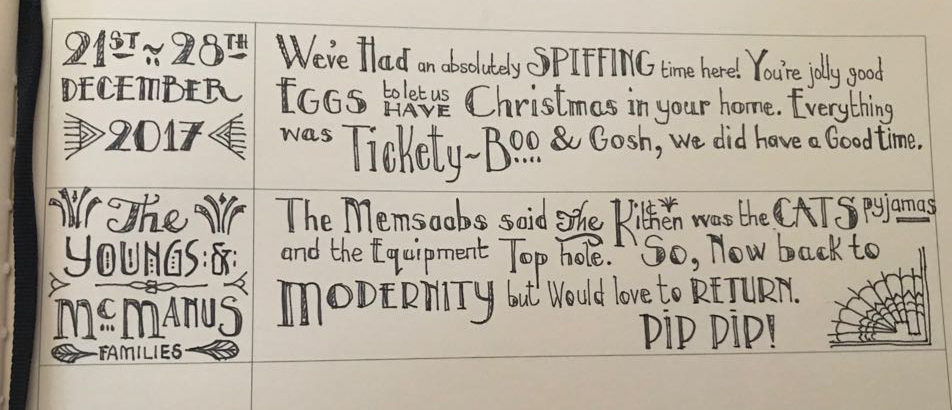 21ST ~ 28TH
DECEMBER
2017
We've Had an absolutely SPIFFING time here! You're jolly good
EGGS to let us HAVE Christmas in your home. Everything
was Tickety~Boo & Gosh, we did have a Good time.
The
YOUNGS &
McMANUS
FAMILIES
The Memsaabs said The Kitchen was the CATS pyjamas
and the Equipment Top hole. So, Now back to
MODERNITY but Would love to RETURN.
PIP PIP!